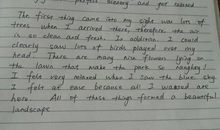 perfect scenery and get relaxed
The first thing came into my sight was lots of
trees when I arrived there, therefore the air
is so clean and fresh. In addition, I could
clearly saw lots of birds played over my
head. There are many nice flowers lying on
the lawns that make the park so naughty
I felt very relaxed when I saw the blue sky.
I felt at ease because all I wanted are
here. All of these things formed a beautiful
landscape